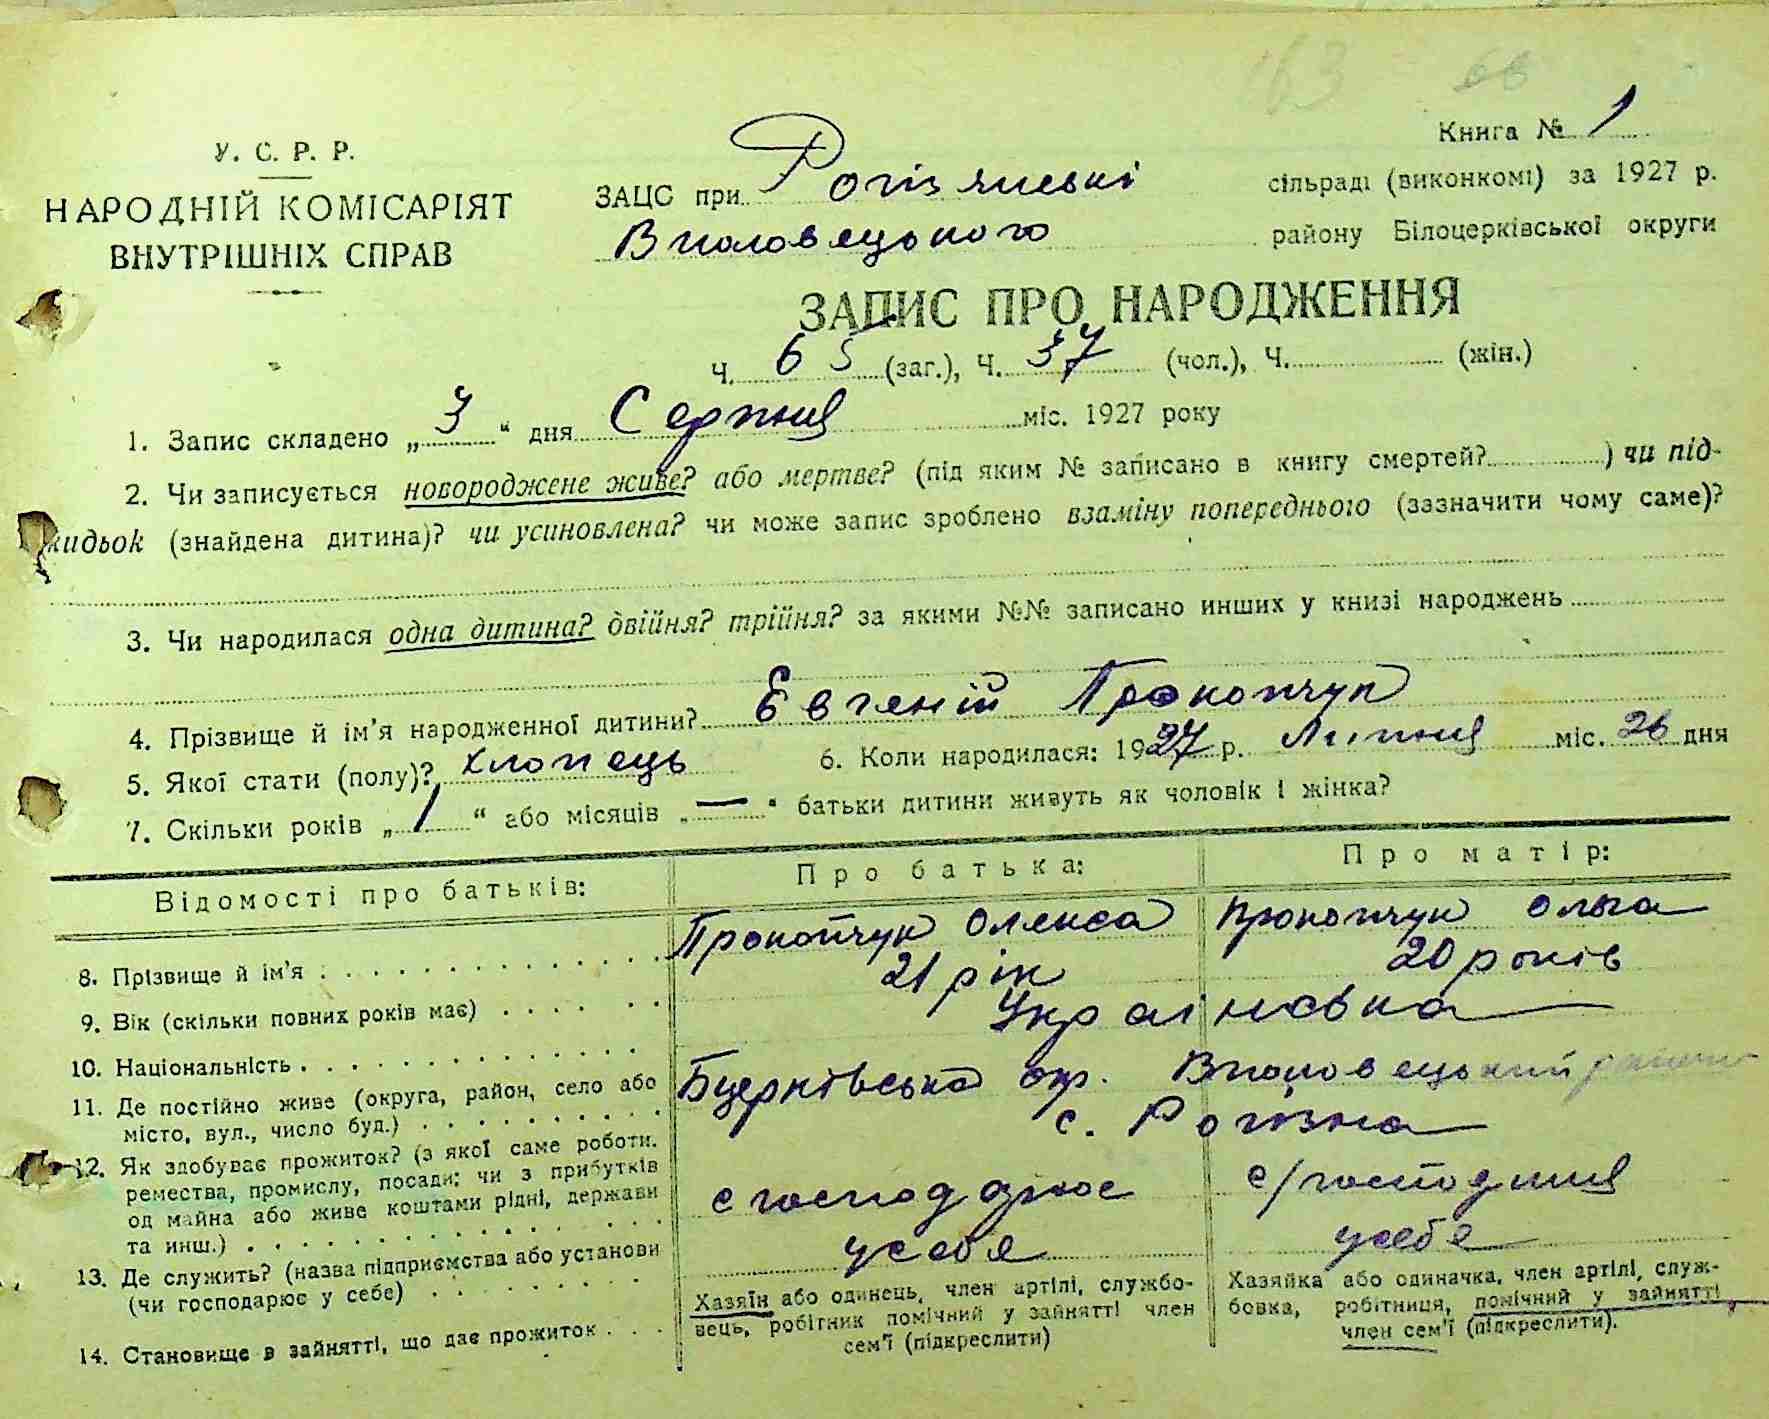 Книга № 1
У. С. Р. Р.
НАРОДНІЙ КОМІСАРІЯТ
ВНУТРІШНІХ СПРАВ
ЗАЦС при Рогізянські сільраді (виконкомі) за 1927 р.
Володвецького району Білоцерківської округи
ЗАПИС ПРО НАРОДЖЕННЯ
Ч. 65 (заг.), Ч. 37 (чол.), Ч. (жін.)
1. Запис складено „ 3 “ дня Серпня міс. 1927 року
2. Чи записується новороджене живе? або мертве? (під яким № записано в книгу смертей? ) чи під-
кидьок (знайдена дитина)? чи усиновлена? чи може запис зроблено взаміну попереднього (зазначити чому саме)?
3. Чи народилася одна дитина? двійня? трійня? за якими №№ записано инших у книзі народжень
4. Прізвище й ім'я народженної дитини? Євгеній Прокопчук
5. Якої стати (полу)? хлопець 6. Коли народилася: 1927 р. Липня міс. 26 дня
7. Скільки років „ 1 “ або місяців „ — “ батьки дитини живуть як чоловік і жінка?
Відомості про батьків: Про батька: Про матір:
8. Прізвище й ім'я Прокопчук Олекса Прокопчук Ольга
9. Вік (скільки повних років має) 21 рік 20 років
10. Національність Українська
11. Де постійно живе (округа, район, село або
місто, вул., число буд.) Бцерківська окр. район
с. Рогізна
12. Як здобуває прожиток? (з якої саме роботи,
ремества, промислу, посади; чи з прибутків
од майна або живе коштами рідні, держави
та инш.) с господарює с/господиня
13. Де служить? (назва підприємства або установи
(чи господарює у себе) у себе у себе
14. Становище в зайнятті, що дає прожиток
Хазяїн або одинець, член артілі, службо-
вець, робітник помічний у зайнятті член
сем'ї (підкреслити)
Хазяйка або одиначка, член артілі, служ-
бовка, робітниця, помічний у зайнятті
член сем'ї (підкреслити).